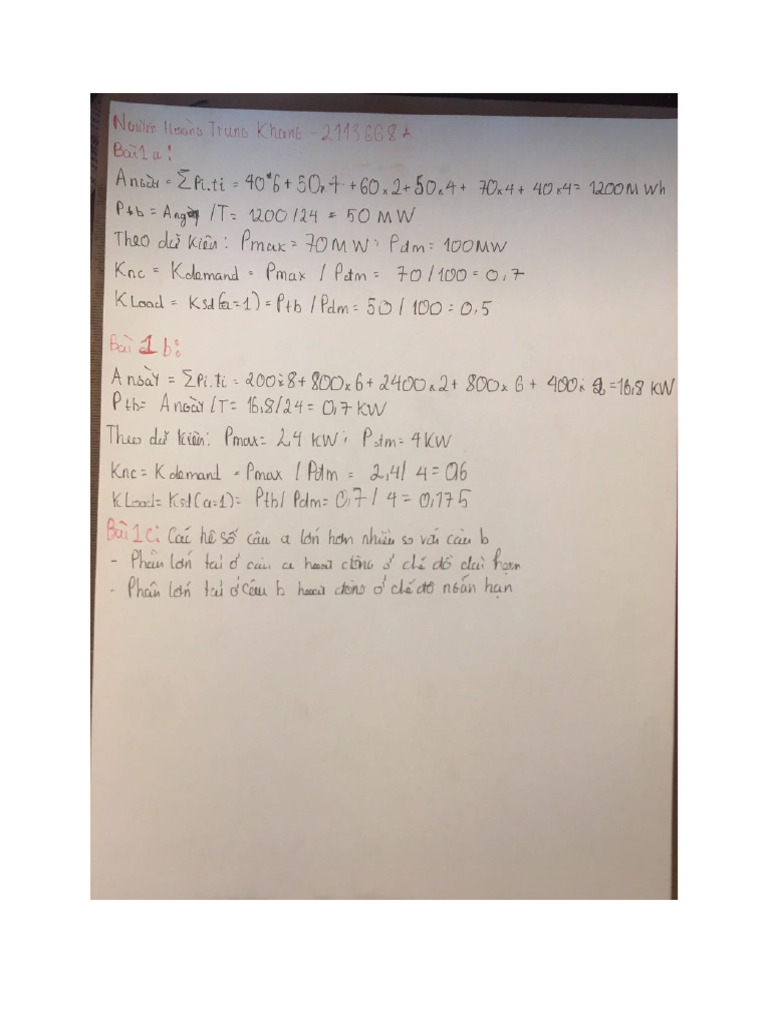 Hoàng Trung Khang - 2113668
Bài 1 a:
Angày = ΣPi.ti = 40*6 + 50x4 + 60x2 + 50x4 + 70x4 + 40x4 = 1200 MWh
Ptb = Angày /T = 1200/24 = 50 MW
Theo dữ kiện: Pmax = 70MW; Pdm = 100MW
Knc = Kdemand = Pmax / Pdm = 70/100 = 0,7
KLoad = Ksd(a=1) = Ptb / Pdm = 50 / 100 = 0,5
Bài 1 b:
Angày = ΣPi.ti = 200x8 + 800x6 + 2400x2 + 800x6 + 400x 2 = 16,8 KW
Ptb = Angày /T = 16,8/24 = 0,7 KW
Theo dữ kiện: Pmax = 2,4 KW; Pdm = 4KW
Knc = Kdemand = Pmax / Pdm = 2,4/ 4 = 0,6
KLoad = Ksd(a=1) = Ptb/ Pdm = 0,7 / 4 = 0,175
Bài 1 c: Các hệ số câu a lớn hơn nhiều so với câu b
- Phần lớn tải ở câu a hoạt động ở chế độ dài hạn
- Phần lớn tải ở câu b hoạt động ở chế độ ngắn hạn